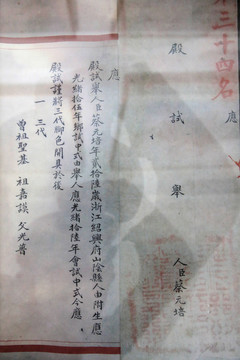 三十四名
殿試舉
人臣蔡元培
應
殿試舉人臣蔡元培年貳拾陸歲浙江紹興府山陰縣人由附生應
光緒拾伍年鄉試中式由舉人應光緒拾陸年會試中式今應
殿試謹將三代脚色開具於後
一 三代
曾祖聖基 祖嘉謨 父光普